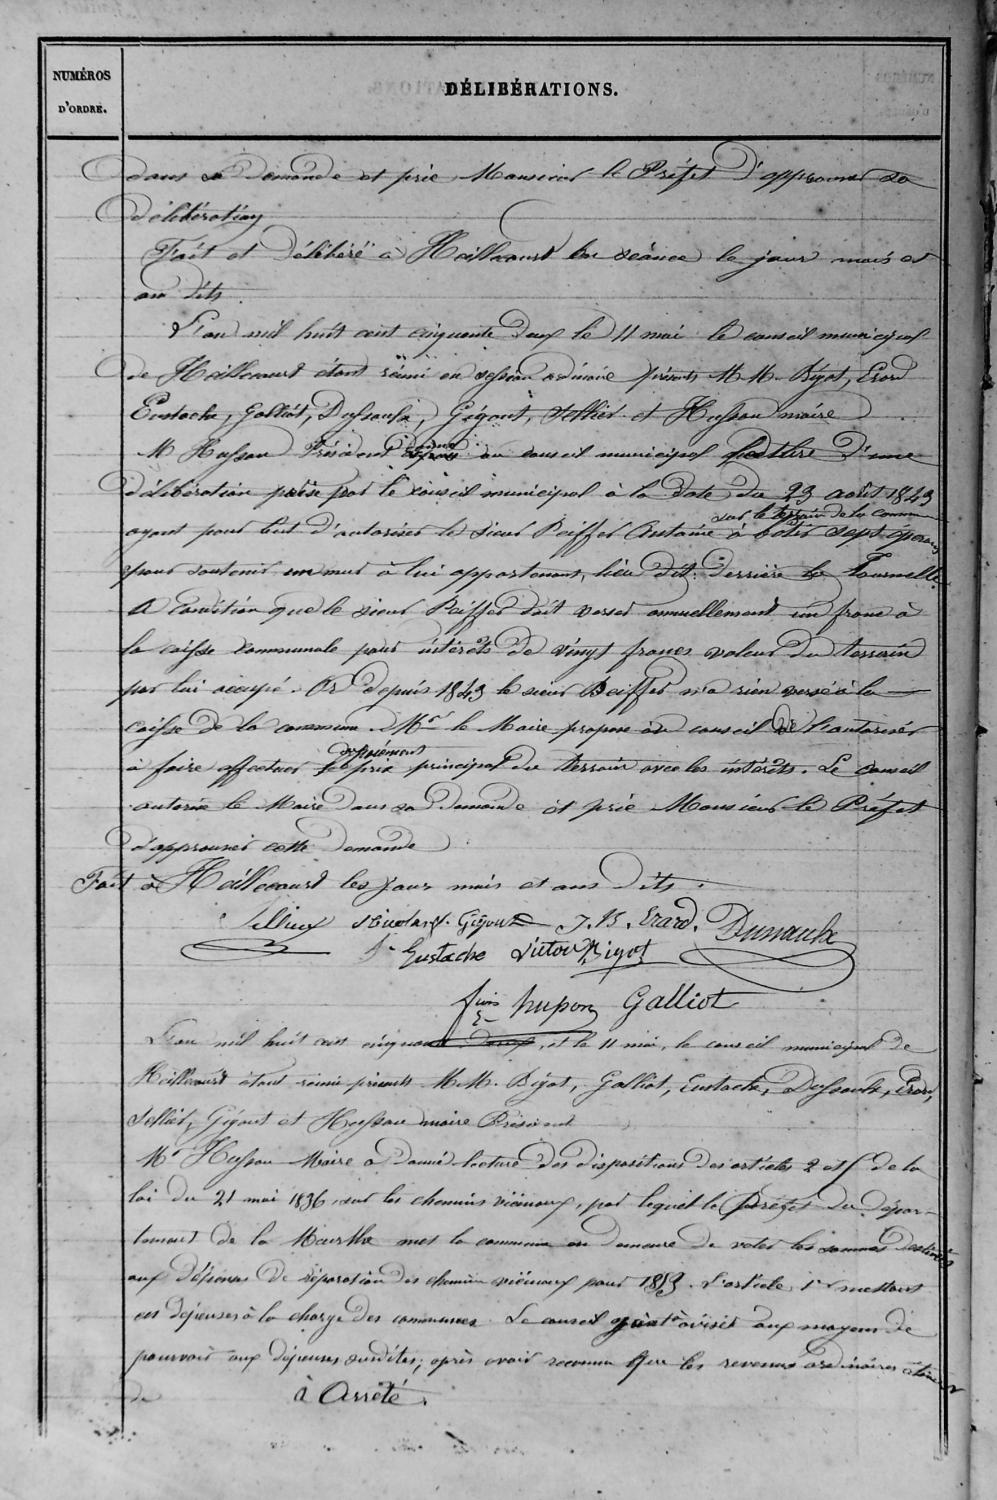 NUMÉROS
D'ORDRE.
DÉLIBÉRATIONS.
dans sa demande et prie Monsieur le Préfet d'approuver sa
délibération
Fait et délibéré à Heillecourt en séance le jour mois et
an dits.
L'an mil huit cent cinquante deux le 11 mai le conseil municipal
de Heillecourt étant réuni en session ordinaire présents M.M. Bigot, Erard
Eustache, Galliot, Dussaulx, Gégout, Sellier et Husson maire
M Husson Président donne au conseil municipal lecture d'une
délibération prise par le conseil municipal à la date du 23 août 1843
sur le terrain de la commune
ayant pour but d'autoriser le sieur Peiffer Antoine à bâtir sept éperons
pour soutenir un mur à lui appartenant, lieu dit: derrière la Tournelle.
A condition que le sieur Peiffer doit verser annuellement un franc à
la caisse communale pour intérêts de vingt francs valeur du terrain
par lui occupé. Or depuis 1843 le sieur Peiffer n'a rien versé à la
caisse de la commune. Mr le Maire propose au conseil de l'autoriser
à faire effectuer le prix principal du terrain avec les intérêts. Le conseil
autorise le Maire dans sa demande et prie Monsieur le Préfet
d'approuver cette demande
Fait à Heillecourt les jour mois et ans dits.
Sellier Nicolas Gégout J.B. Erard. Dussaulx
Eustache Victor Bigot
husson Galliot
L'an mil huit cent cinquante deux, et le 11 mai, le conseil municipal de
Heillecourt étant réuni présents M.M. Bigot, Galliot, Eustache, Dussaulx, Erard,
Sellier, Gégout et Husson maire Président
Mr Husson Maire a donné lecture des dispositions des articles 2 et 5 de la
loi du 21 mai 1836, sur les chemins vicinaux, par lequel le Préfet du dépar-
tement de la Meurthe met la commune en demeure de voter les sommes destinées
aux dépenses de réparation des chemins vicinaux pour 1853. L'article 1er mettant
ces dépenses à la charge des communes. Le conseil ayant avisé aux moyens de
pourvoir aux dépenses susdites, après avoir reconnu que les revenus ordinaires
de à Arrêté.